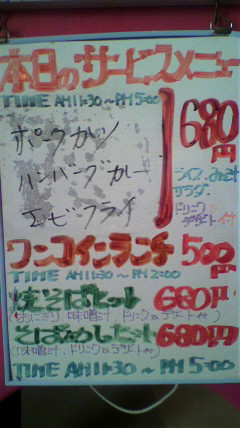 本日のサービスメニュー
TIME AM11:30～PM5:00
ポークカツ
ハンバーグカレー
エビフライ
680円
ライス、みそ汁
サラダ、
ドリンク
デザート付
ワンコインランチ 500円
TIME AM11:30～PM2:00
焼そばセット 680円
(おにぎり、味噌汁、ドリンク&デザート付)
そばめしセット 680円
(味噌汁、ドリンク&デザート付)
TIME AM11:30～PM5:00